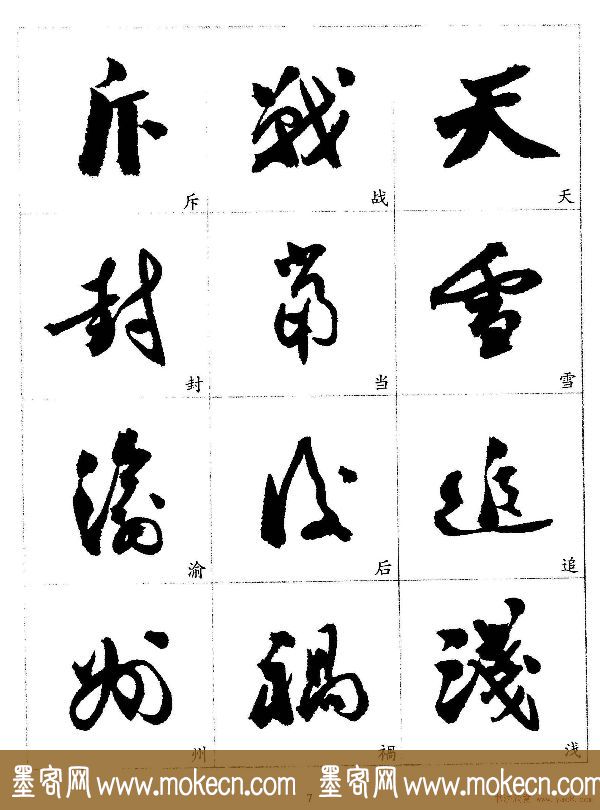 斥 戰 天
斥 战 天
封 當 雪
封 当 雪
渝 後 追
渝 后 追
州 禍 淺
州 祸 浅
墨客网 www.mokecn.com 墨客网 www.mokecn.com
7